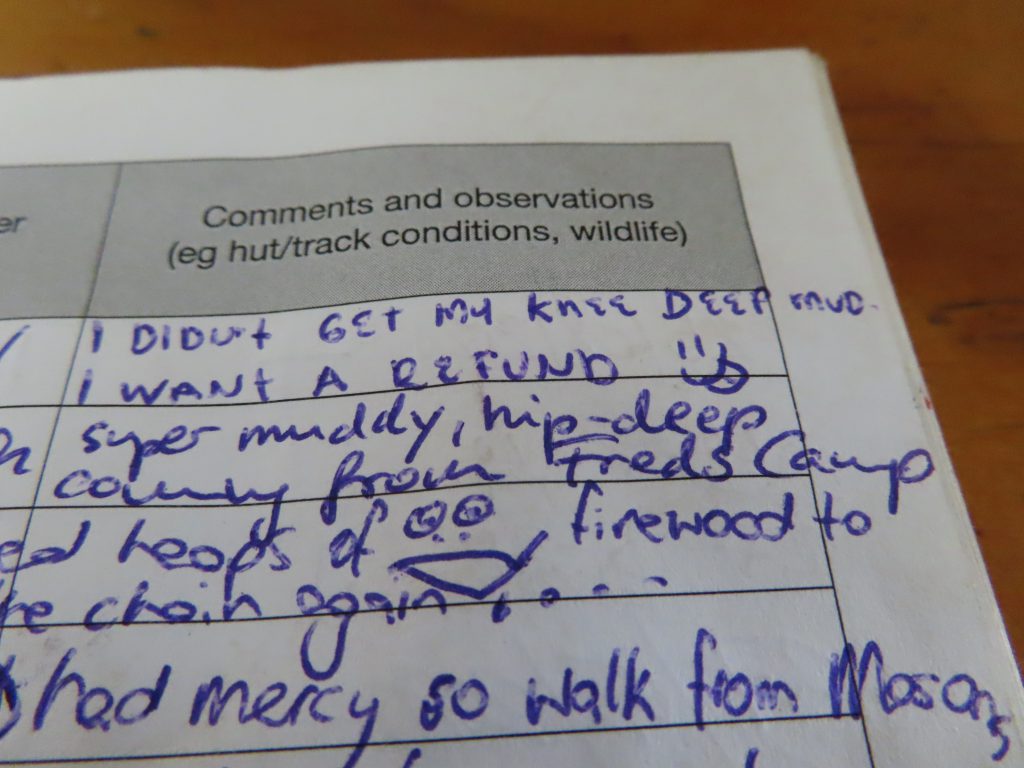 er
Comments and observations
(eg hut/track conditions, wildlife)
I DIDN't GEt MY KNEE DEEP MUD.
I WANt A REFUND
super muddy, hip-deep
from Freds Camp
heaps of firewood to
chain again . . . .
had mercy so walk from Masons